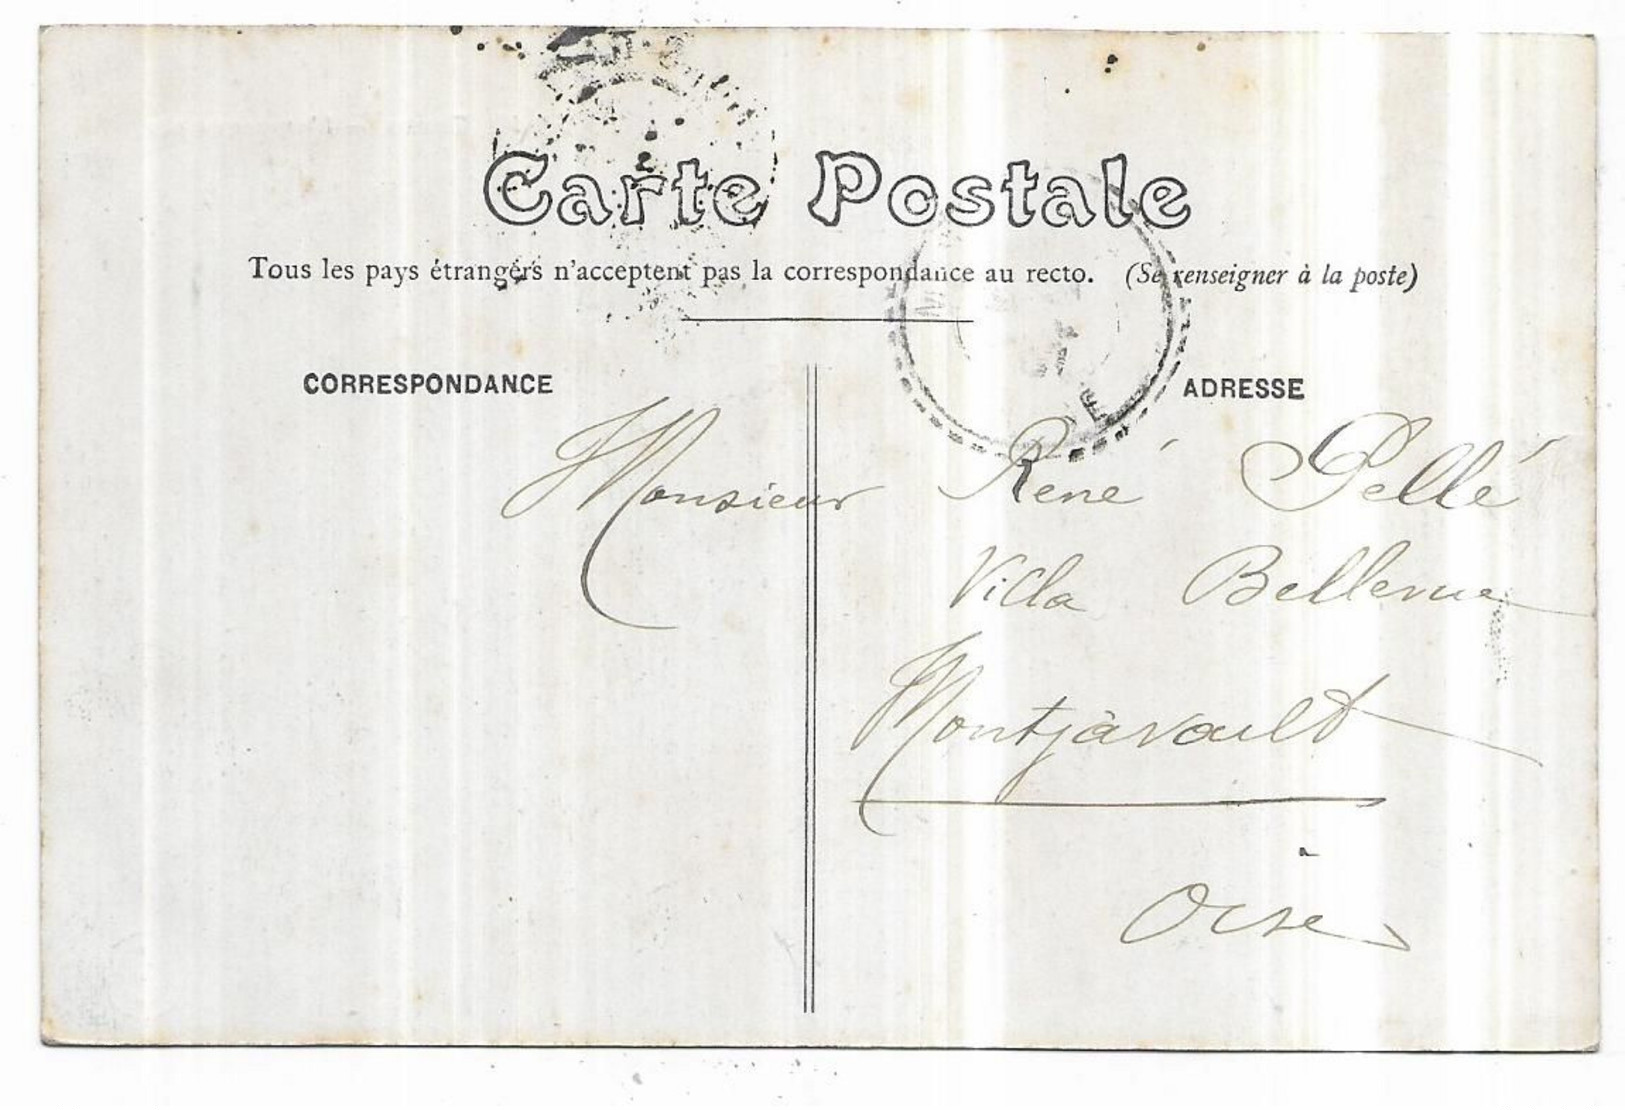 Carte Postale
Tous les pays étrangers n'acceptent pas la correspondance au recto. (Se renseigner à la poste)
CORRESPONDANCE
ADRESSE
Monsieur René Pellé
Villa Bellevue
Montjavoult
Oise